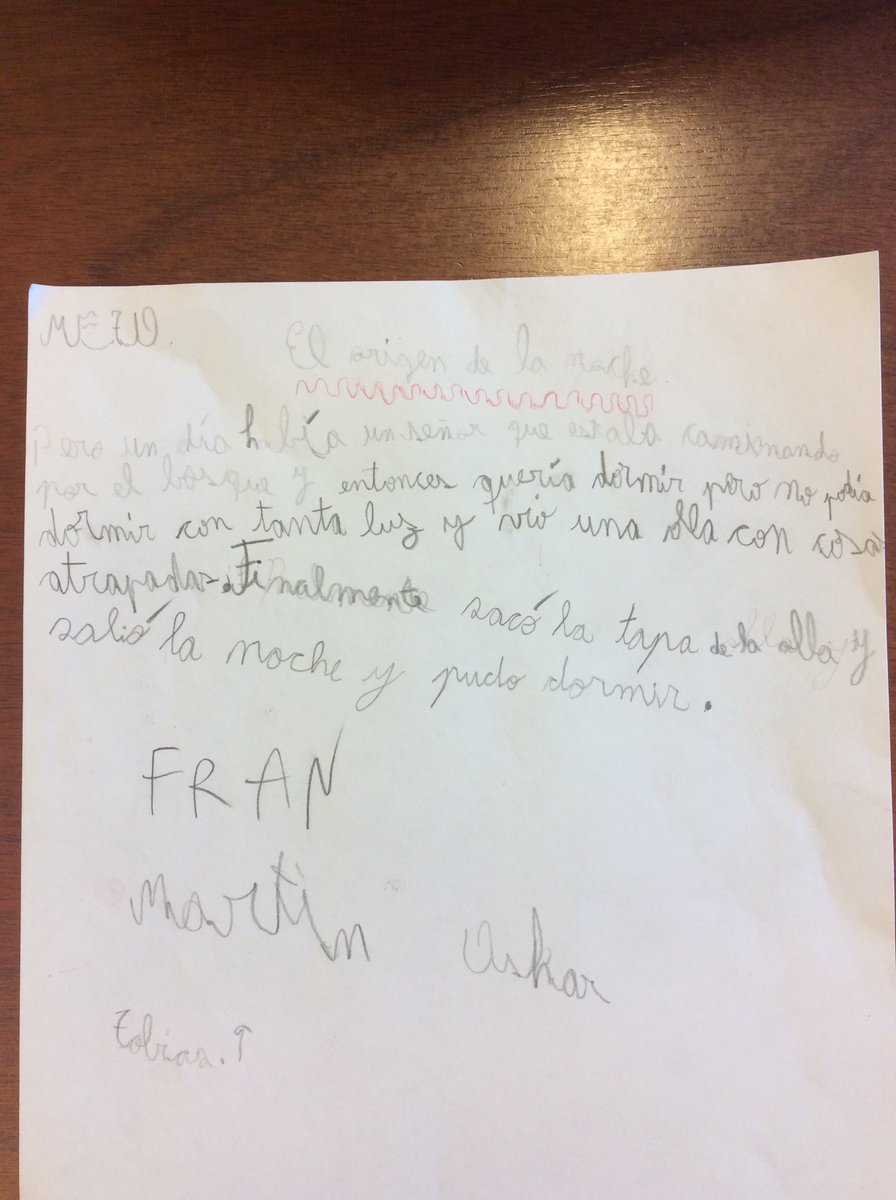 El origen de la noche
Pero un día había un señor que estaba caminando
por el bosque y entonces quería dormir pero no podía
dormir con tanta luz y vio una olla con cosas
atrapadas. Finalmente sacó la tapa de la olla y
salió la noche y pudo dormir.
FRAN
Martín Oskar
Tobias.T